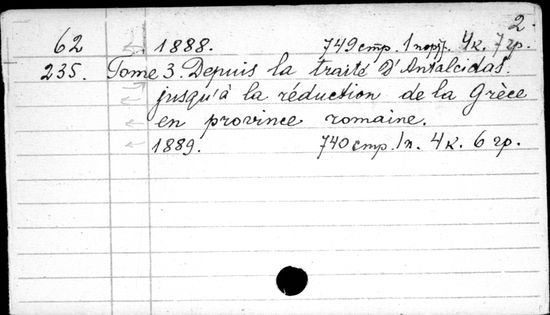 2.
62 1888. 749 стр. 1 порт. 4 к. 7 гр.
235. Tome 3. Depuis la traité d'Antalcidas.
jusqu'à la réduction de la Grèce
en province romaine.
1889. 740 стр. 1 п. 4 к. 6 гр.